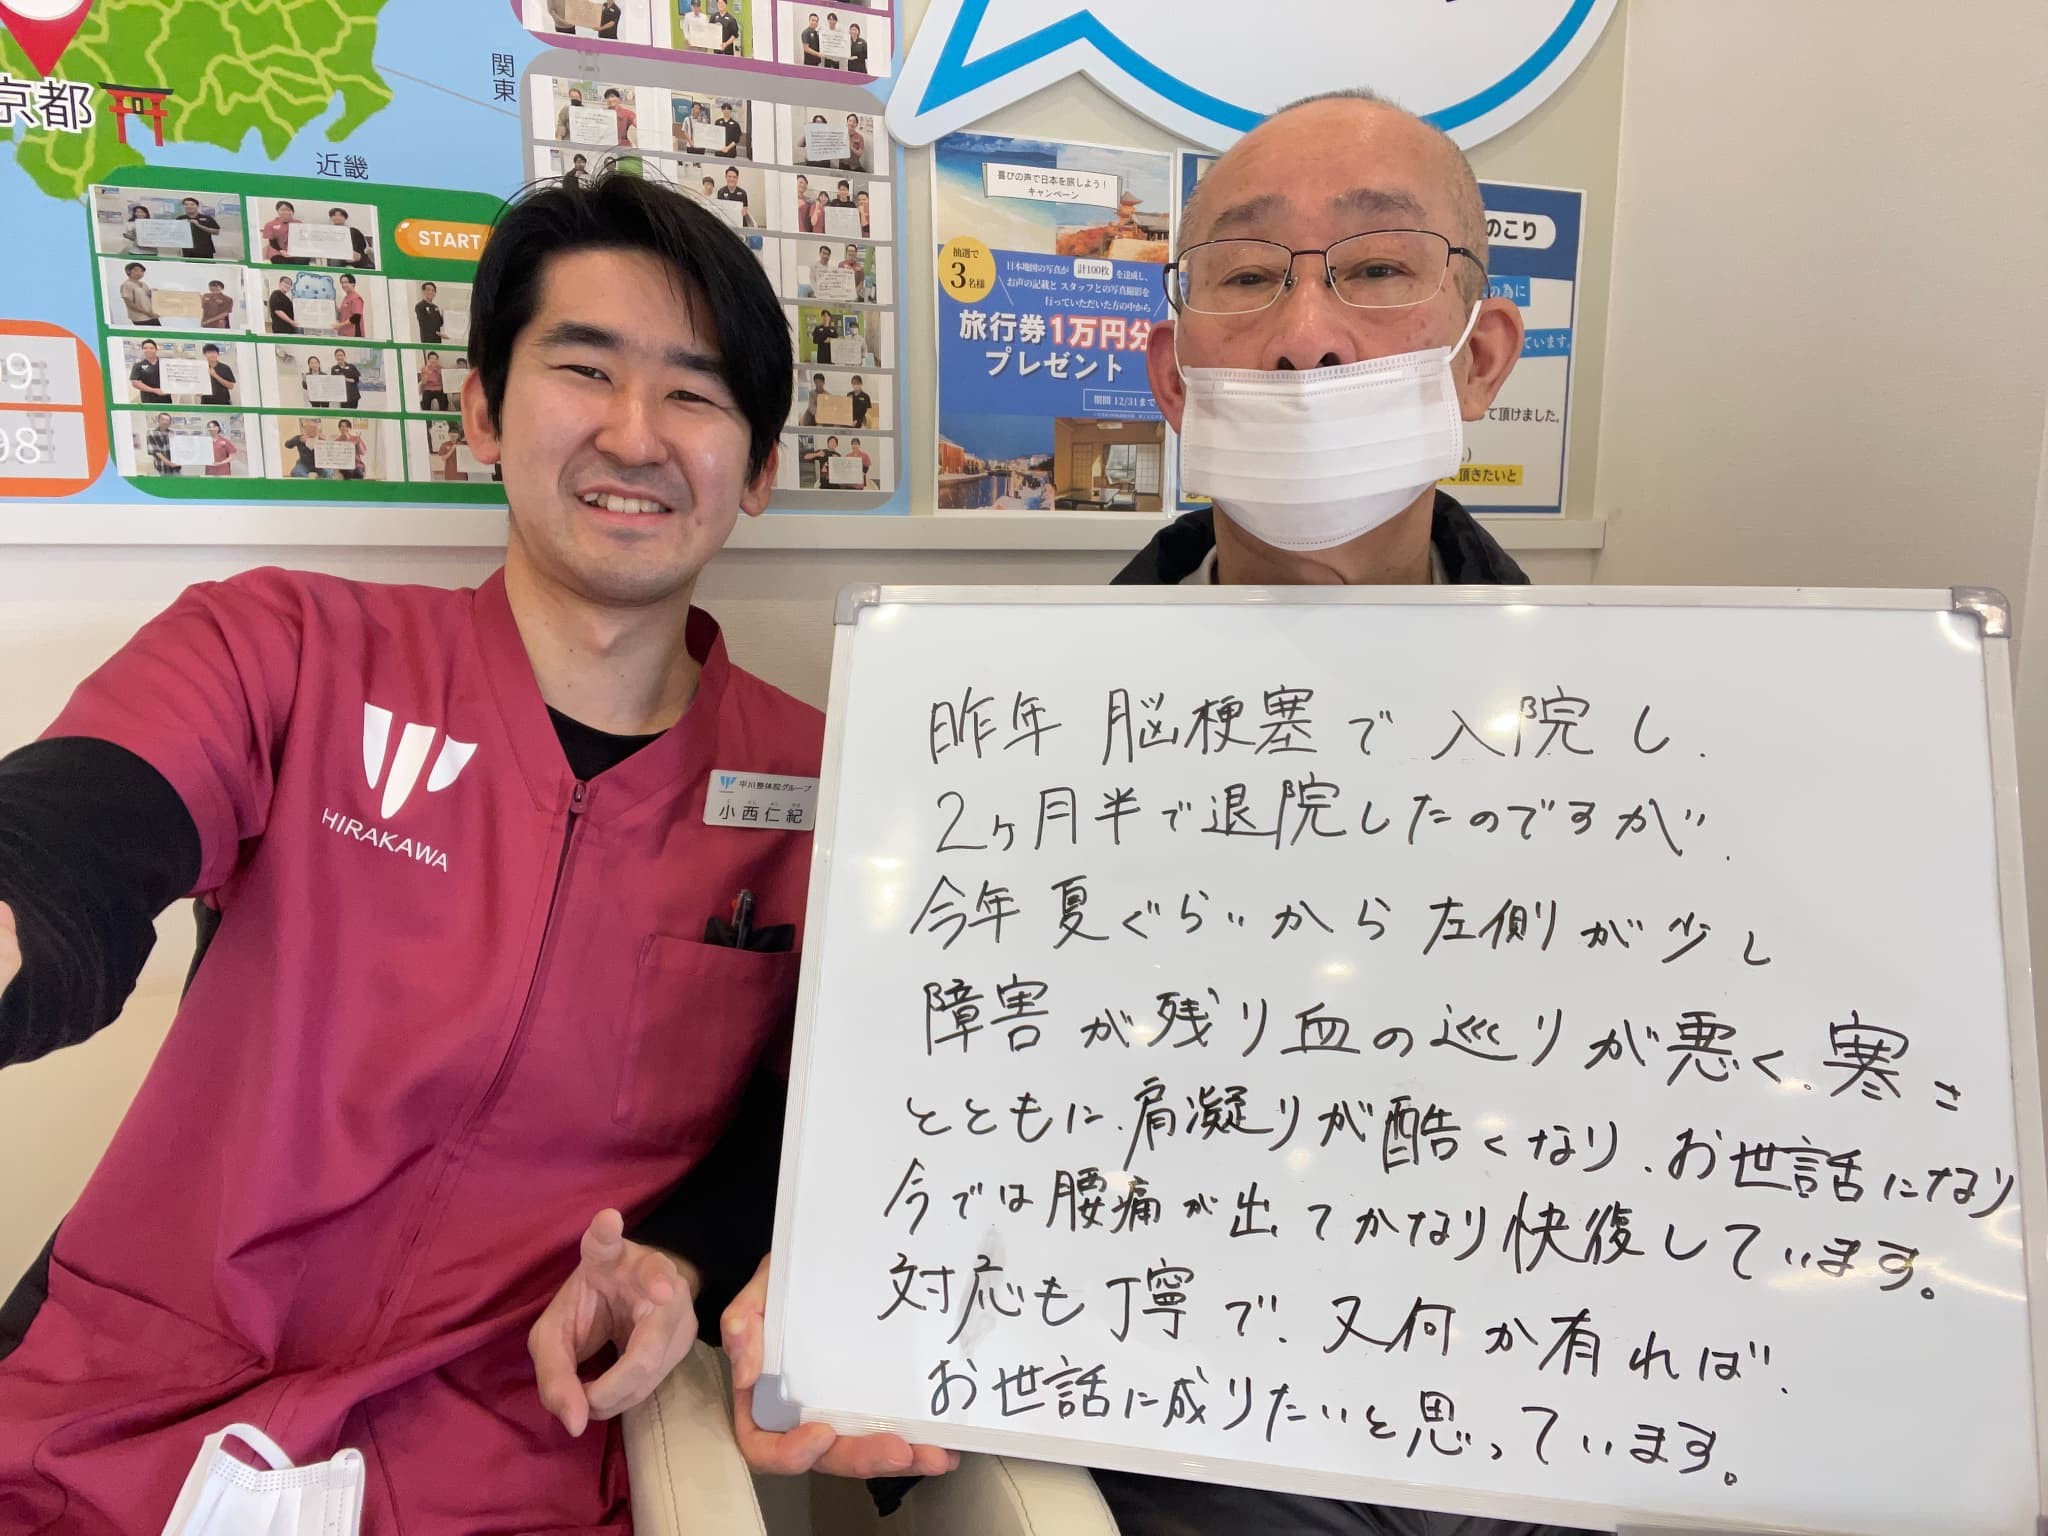 京都
近畿
関東
START
99
98
喜びの声で日本を旅しよう！
キャンペーン
抽選で
3名様
日本地図の写真が 計100枚 を達成し、
お声の記載と スタッフとの写真撮影を
行っていただいた方の中から
旅行券1万円分
プレゼント
期間 12/31まで
のこり
の為に
ています。
て頂けました。
頂きたいと
HIRAKAWA
平川整体院グループ
小西仁紀
昨年 脳梗塞で 入院し、
2ヶ月半で退院したのですが、
今年 夏ぐらいから 左側が少し
障害が残り血の巡りが悪く、寒さ
とともに、肩凝りが酷くなり、お世話になり
今では腰痛が出てかなり快復しています。
対応も丁寧で、又何か有れば、
お世話に成りたいと思っています。